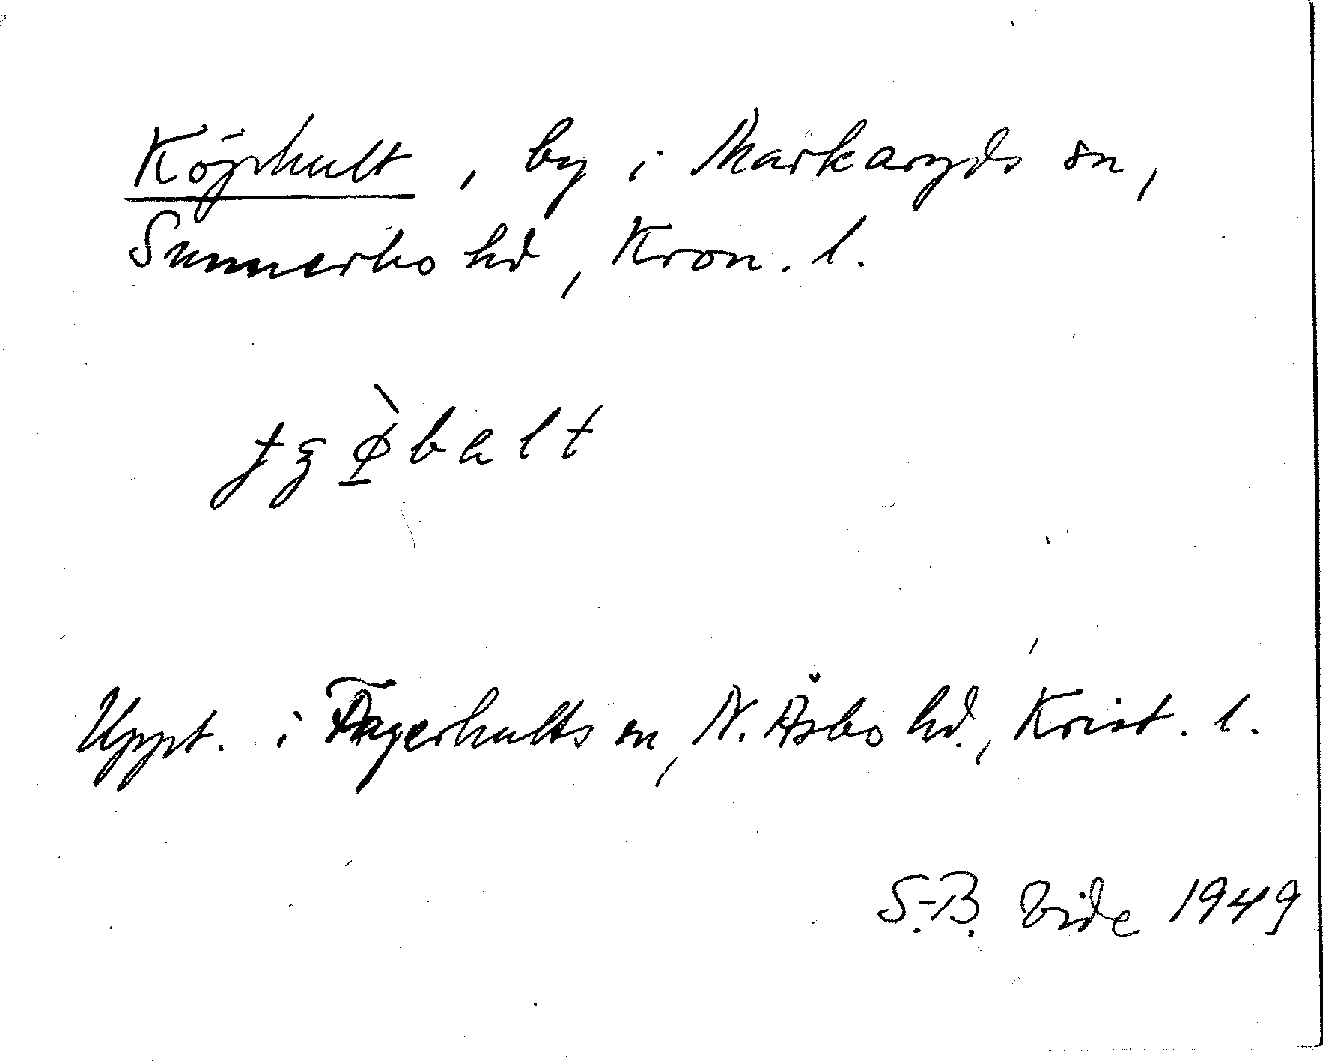 Köphult, by i Markaryds sn,
Sunnerbo hd, Kron. l.
Uppt. i Fagerhults sn, N. Åsbo hd., Krist. l.
S.-B. Vide 1949